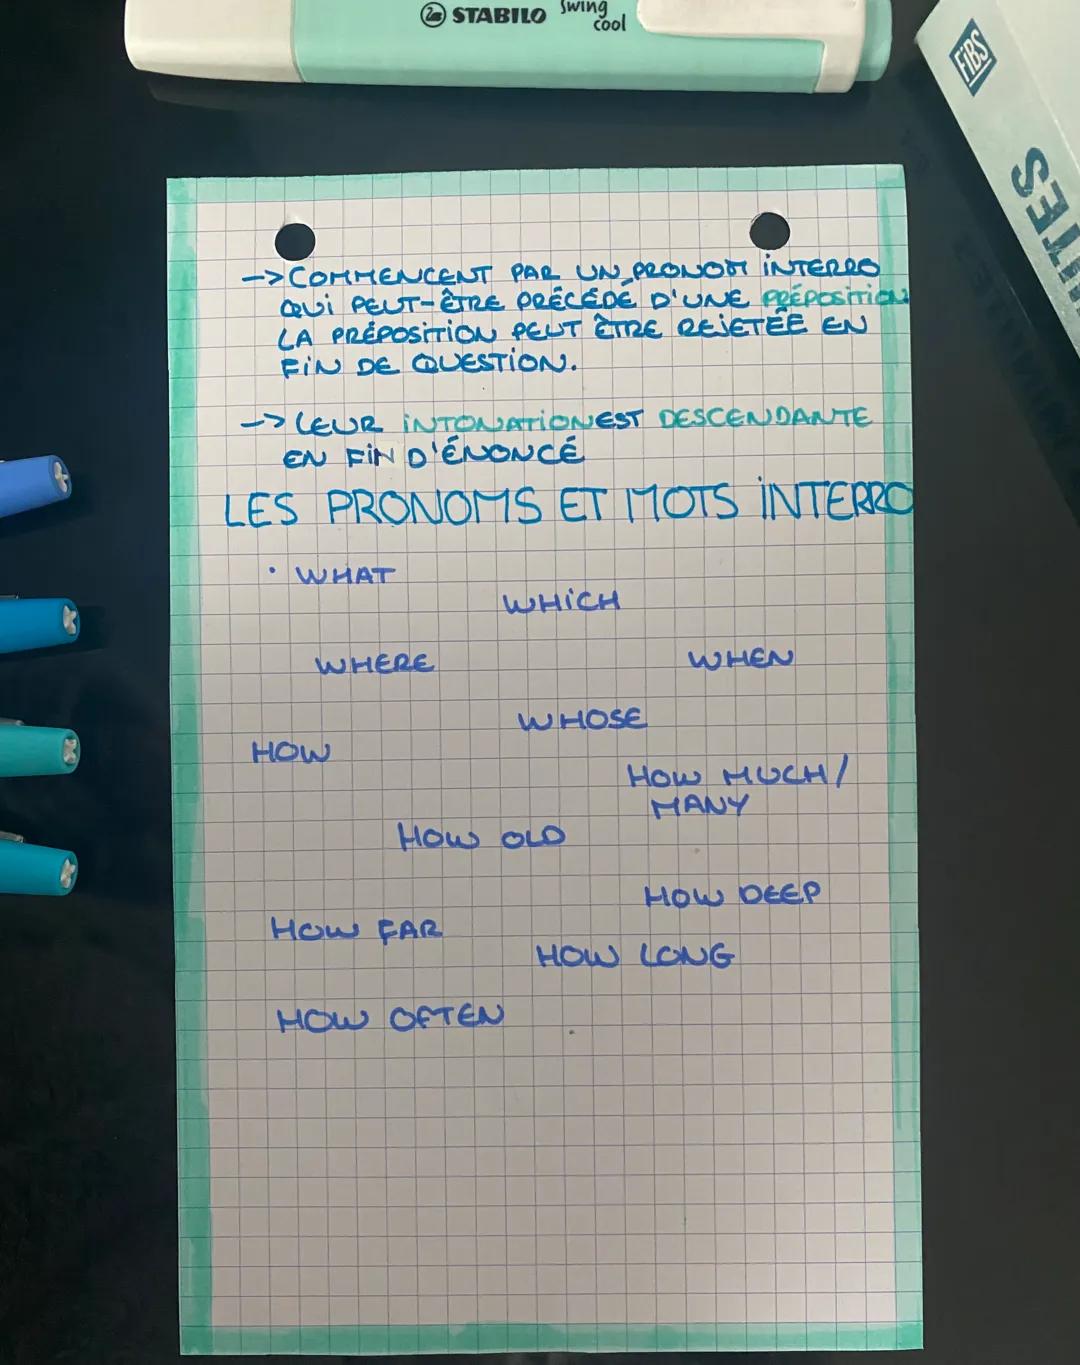 STABILO swing cool
FiBS
-> COMMENCENT PAR UN PRONOM iNTERRO
QUi PEUT-ÊTRE PRÉCÉDÉ D'UNE PRÉPOSiTiON
LA PRÉPOSiTiON PEUT ÊTRE REJETÉE EN
FiN DE QUESTiON.
-> LEUR iNTONATiON EST DESCENDANTE
EN FiN D'ÉNONCÉ
LES PRONOMS ET MOTS iNTERRO
• WHAT
WHiCH
WHERE
WHEN
WHOSE
HOW
HOW MUCH/
MANY
HOW OLD
HOW DEEP
HOW FAR
HOW LONG
HOW OFTEN